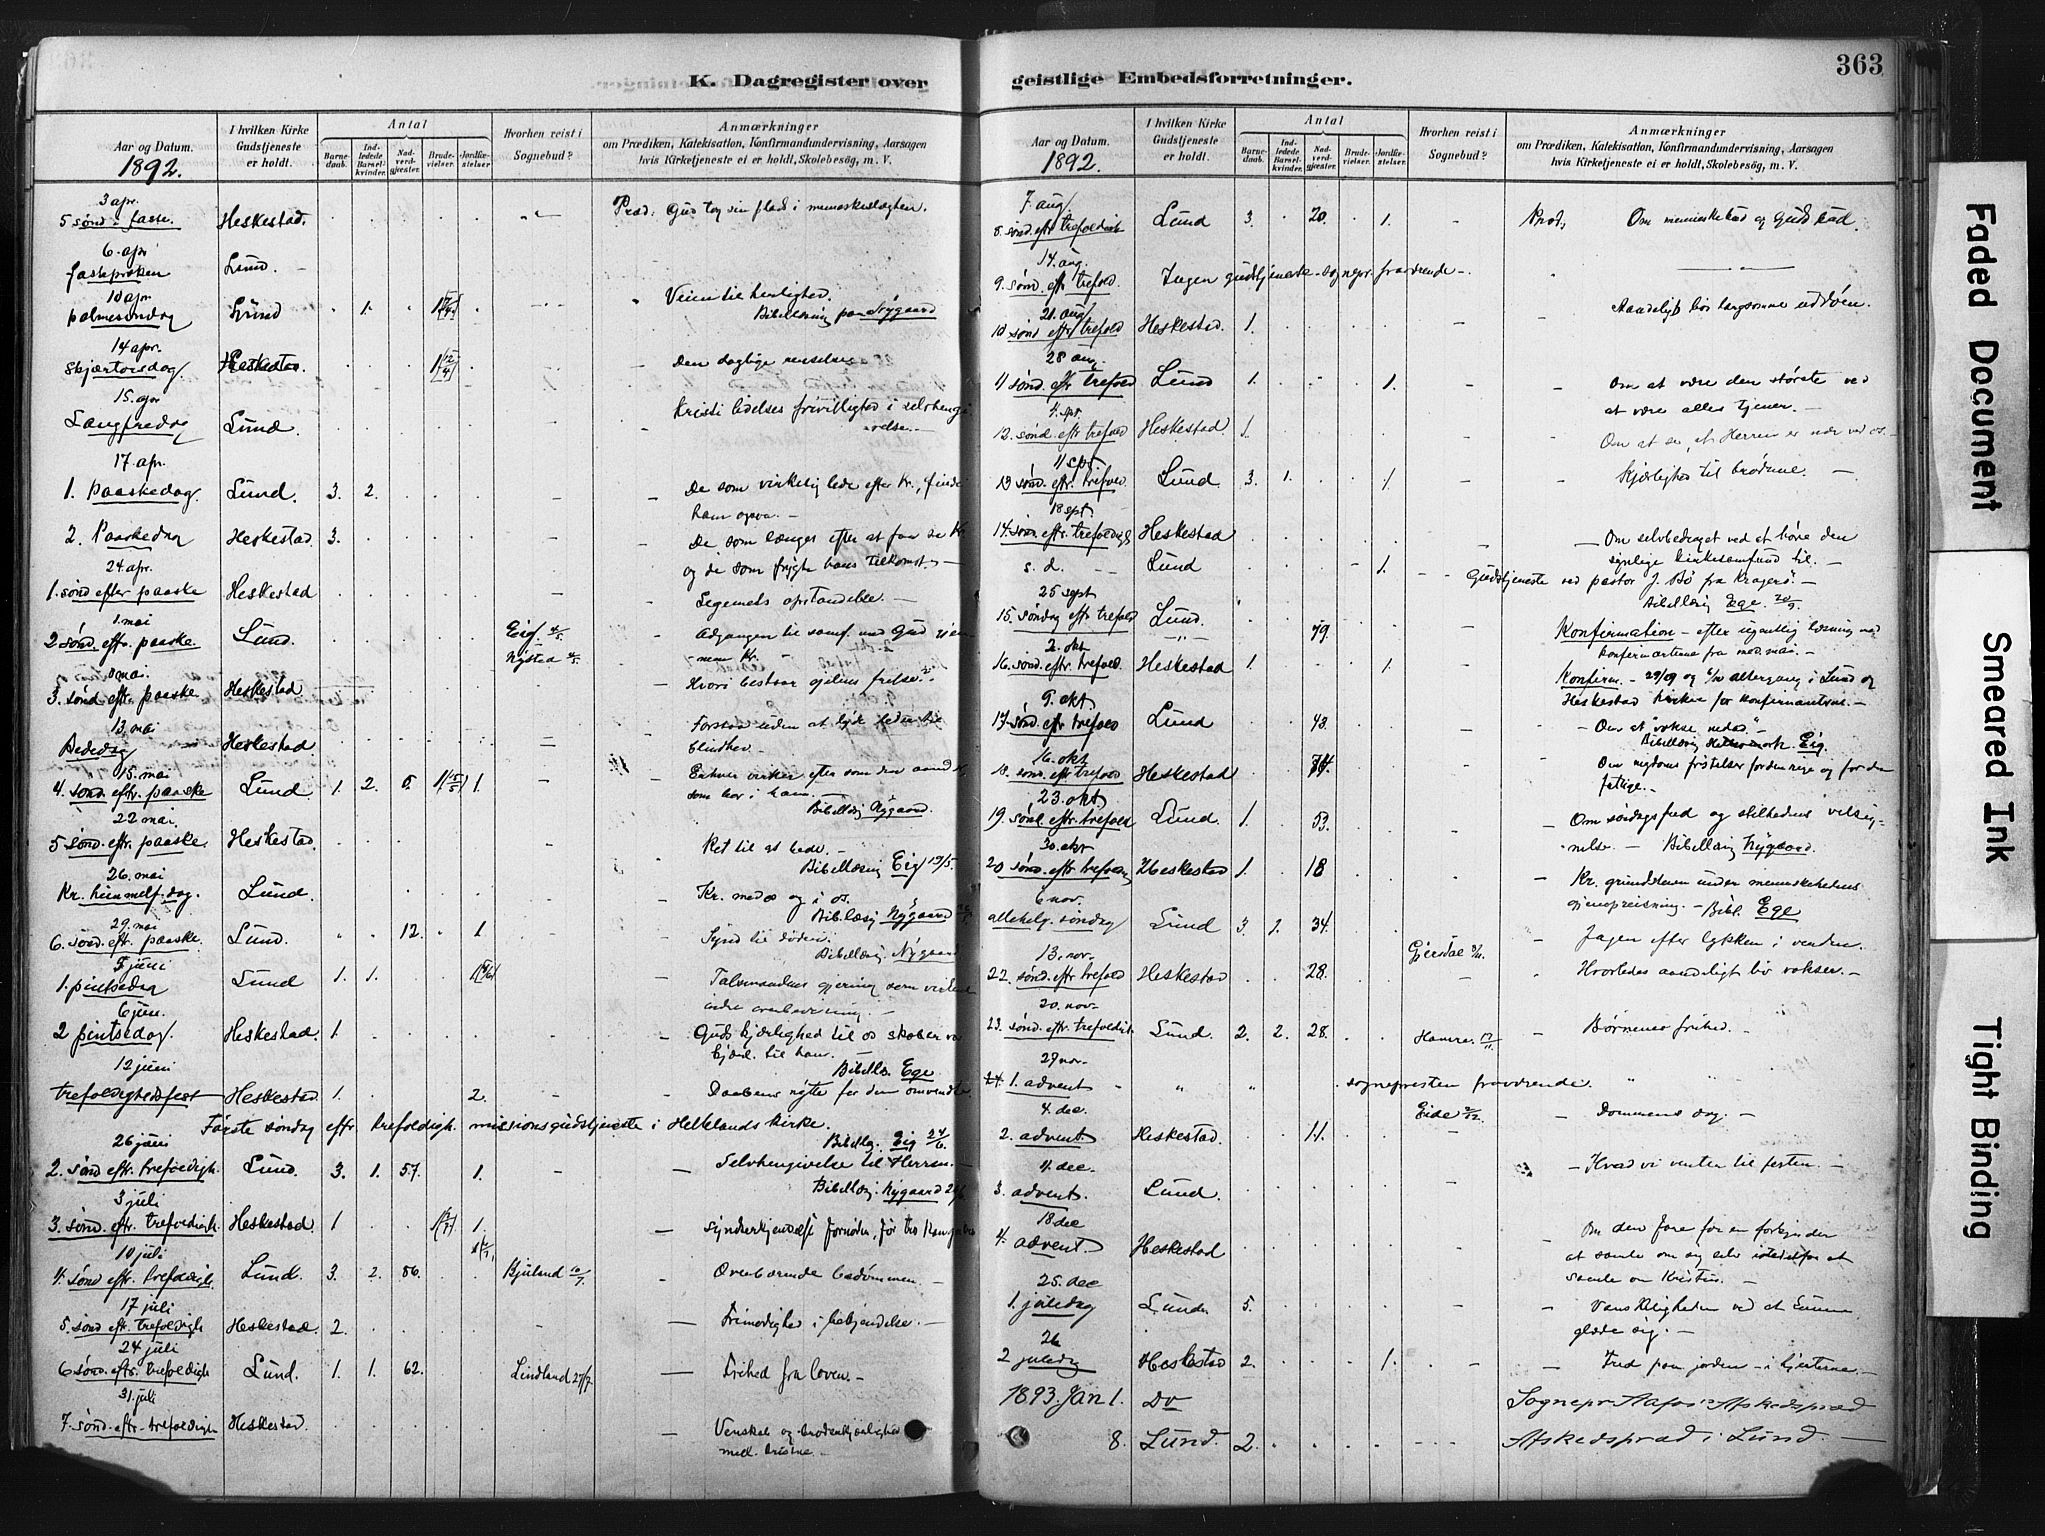 363
K. Dagregister over
Aar og Datum.
1892.
I hvilken Kirke Gudstjeneste er holdt.
Antal
Barnedaab.
Indledede Barselkvinder.
Nadverdgjester.
Brudevielser.
Jordfæstelser.
Hvorhen reist i Sognebud?
Anmærkninger
om Prædiken, Katekisation, Konfirmandundervisning, Aarsagen
hvis Kirketjeneste ei er holdt, Skolebesög, m. V.
3 apr.
5 sønd i faste. Heskestad. Præd. Gud tog sin plads i menneskeslægten.
6. apr
fasteprøken Lund.
10 apr
palmesøndag Lund 1. Veien til herlighed.
Bibellæsning paa Nygaard
14 apr.
Skjærtorsdag Heskestad. 1 (12/4) Den daglige renselse
15. apr
Langfredag Lund. Kristi lidelses frivillighed i selvhengivelse.
17. apr.
1. paaskedag. Lund. 3. 2. De som virkelig lede efter Kr., finde
ham ogsaa. —
2. Paaskedag Heskestad. 3. De som længes efter at faa se Kr
og de som frygte hans tilkomst —
24. apr.
1. sønd efter paaske Heskestad Legemets opstandelse. —
1. mai
2 sønd. eftr. paaske. Lund. Eig Adgangen til samf. med Gud gjennem Kr.
3. sønd eftr. paaske Heskestad
13. mai
Bededag Heskestad Forstaa uden at lyde leder til
blindhed —
15. mai
4. sønd. eftr. paaske Lund. 1. 2. 6. 1 (15/5) 1. Enhver virker efter som den aand er
som bor i ham. —
Bibellæsn Nygaard.
22 mai
5 sønd. eftr. paaske. Heskestad. Ret til at bede. —
Bibellæsning Eig 19/5.
26. mai
Kr. himmelf. dag. Lund. Kr. med os og i os.
Bib.læsn Nygaard
29. mai
6. sønd. eftr. paaske. Lund. 12. 1. Synd til døden.
Bibellæsn. Nygaard
5 juni
1. pintsedag Lund 1. 1. Talsmandens gjerning
6 juni.
2 pintsedag. Heskestad. 1. Guds kjærlighed til os skaber vor
kjærl. til ham.
Bibellæs. Ege
12 juni
trefoldighedsfest Heskestad. 1. 2. Daabens nytte for den omvendte
Første søndag eftr trefoldigh. missionsgudstjeneste i Hellelands kirke.
Bibellæ. Eig 24/6.
26 juni
2. sønd eftr. trefoldigh. Lund. 3. 1. 57. 1. — Selvhengivelse til Herren. —
Bibellæsn. Nygaard
3 juli
3. sønd. eftr. trefoldigh. Heskestad. 1 1. — Synderkjendelse fornøden, før
10 juli
4. sønd eftr. trefoldigh. Lund. 3. 2. 86. Bjuland 10/7. Overbærende bedømmen. —
17 juli
5. sønd eftr. trefoldigh Heskestad. 2. Frimodighed i bekjendelse. —
24 juli
6 sønd. eftr. trefoldigh Lund. 1. 1. 62. Lindland 27/7. — Frihed fra loven. —
31. juli
7. sønd. eftr. trefoldigh Heskestad. Venskab og broderkjærlighed
med kristne —
geistlige Embedsforretninger.
Aar og Datum.
1892.
I hvilken Kirke Gudstjeneste er holdt.
Antal
Barnedaab.
Indledede Barselkvinder.
Nadverdgjester.
Brudevielser.
Jordfæstelser.
Hvorhen reist i Sognebud?
Anmærkninger
om Prædiken, Katekisation, Konfirmandundervisning, Aarsagen
hvis Kirketjeneste ei er holdt, Skolebesög, m. V.
7. aug
8. sønd. eftr trefoldigh Lund 3. 20. 1. Om menneskeraad og Guds raad.
14. aug.
9. sønd. eftr trefold. Ingen gudstjeneste — sognepr. fraværende —
21. aug
10 sønd eftr trefold Heskestad. 1. Aandeligt liv langsomme uddøen.
28 aug
11 sønd. eftr. trefold Lund 1. 1. Om at være den største ved
at være alles tjener. —
4. spt
12. sønd. eftr trefold Heskestad. 1. Om at se, at Herren er nær ved os. —
11 spt.
13 sønd. eftr. trefold. Lund 3. 1. 1. Kjærlighed til brødrene. —
18 spt.
14. sønd eftr. trefoldigh Heskestad — Om selvbedraget ved at høre den
synlige kirkesamfund til. —
s. d. Lund 1. Gudstjeneste ved pastor J. Bø fra Kragerø. —
Bibellæsn Ege. 20/9.
25 sept
15. søndag eftr trefold Lund. 79. Konfirmation — efter ugentlig læsning med
konfirmanterne fra med. mai. —
2. okt
16. sønd. eftr. trefold. Heskestad 1. 1. Konfirm. — 29/09 og altergang i Lund og
Heskestad kirker for konfirmanterne. —
9. okt
17. sønd. eftr trefold Lund 43. — Om at "vokse nedad" —
Bibellæsn Eig.
16. okt
18. sønd. eftr trefold Heskestad Om rigdoms fristelser for den rige og for den
fattige. —
23. okt
19. sønd. eftr. trefold Lund. 1. 53. — Om søndagsfred og stilhedens velsignelse. — Bibellæsn Nygaard.
30. okt
20 sønd. eftr. trefoldig Heskestad 1. 18 — Kr. grundstenen under menneskehedens
gjenopreisning. — Bibl. Ege
6 nov.
allehelg. søndag Lund 3. 1. 34. Gjersdal — Jagen efter lykken i verden.
13. nov.
22. sønd. eftr trefold Heskestad 28. Hvorledes aandeligt liv vokser. —
20. nov.
23. sønd. eftr. trefoldigh. Lund. 2. 2. 28. Hamre. — Børnenes frihed. —
27 nov.
1. advent sognepresten fraværende.
4. dec. Eide 2/12. — Dommens dag. —
2. advent Heskestad. 11.
11. dec.
3. advent. Lund. — Hvad vi venter til festen. —
18 dec
4. advent. Heskestad Om den fare for en forkynder
at samle om sig selv istedetfor at
samle om Kristus. —
25. dec
1. juledag Lund. 5. — Vanskeligheden ved at kunne
glæde sig. —
26
2 juledag Heskestad 2. 1. — Fred paa jorden — i hjerterne. —
1893. Jan 1. Do Sognepr Afskedspræd
8. Lund. 2. Afskedspræd i Lund. —
Faded Document
Smeared Ink
Tight Binding